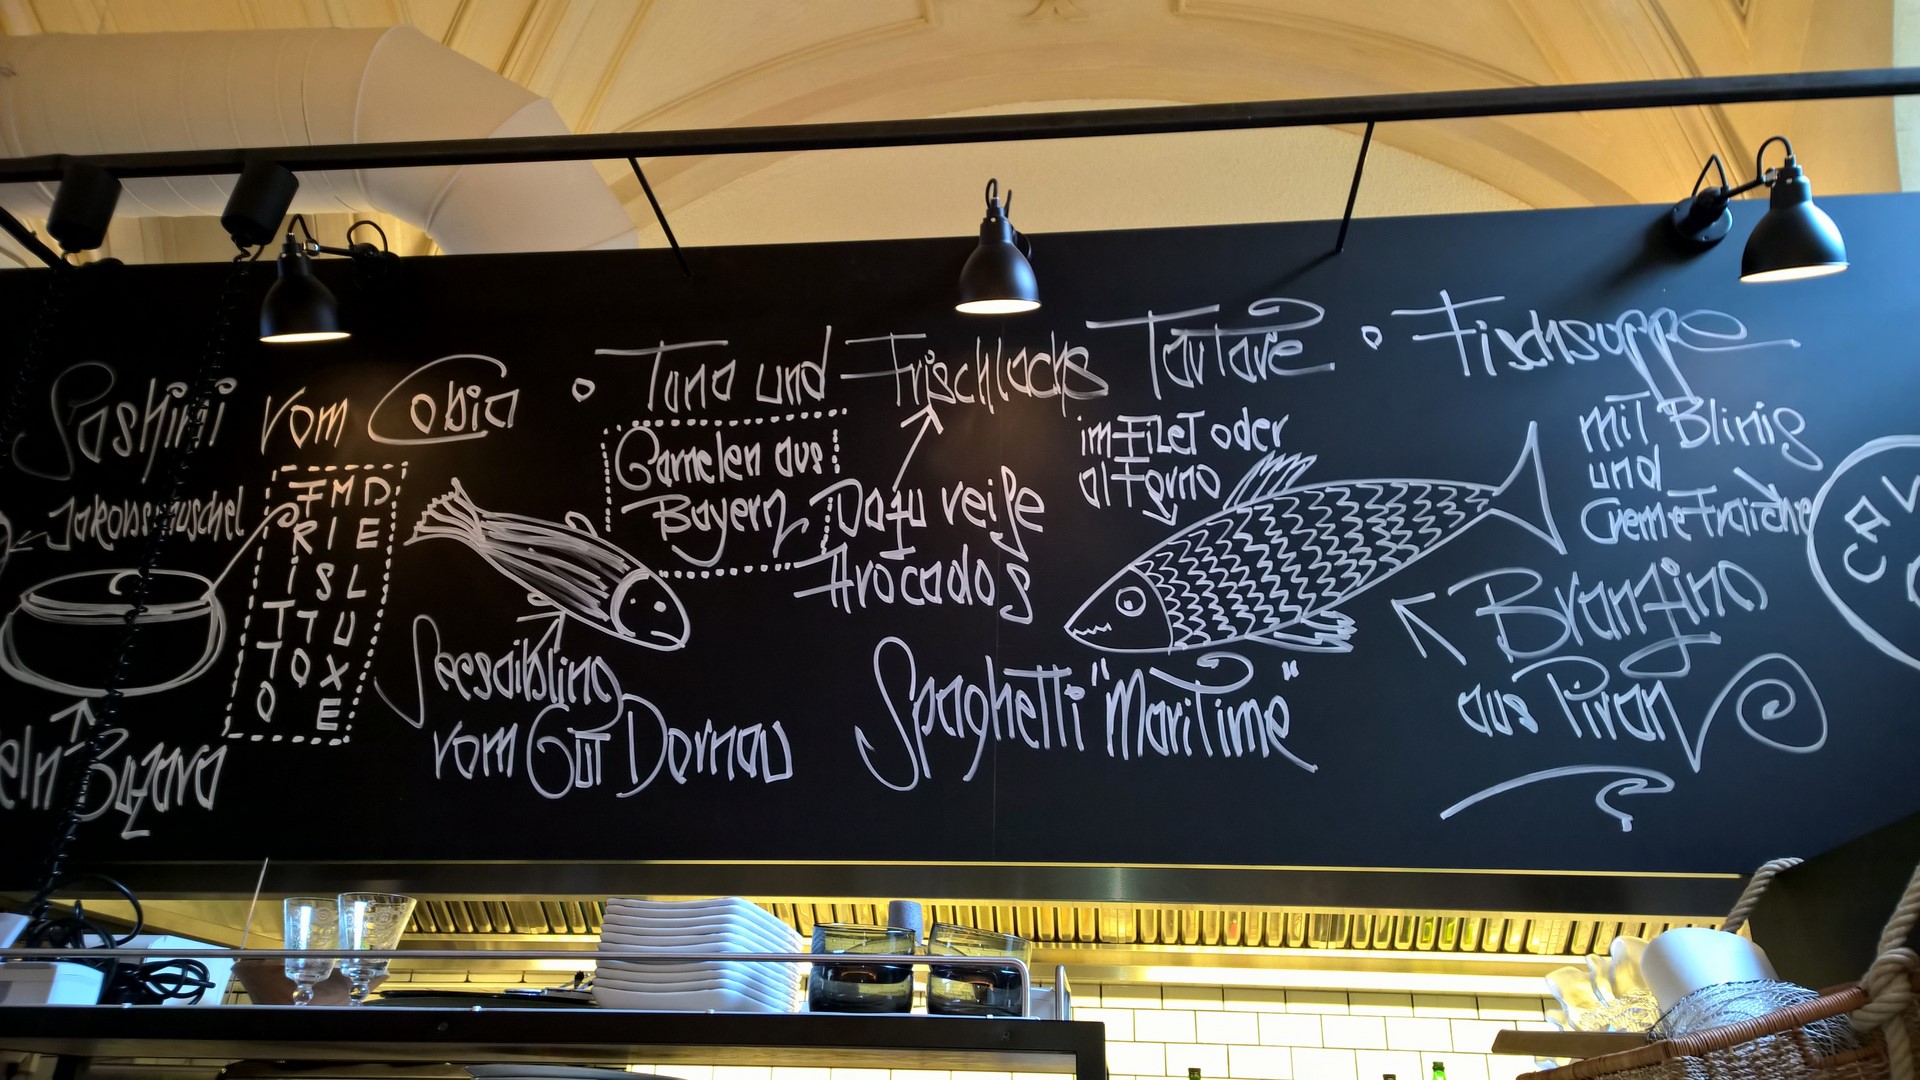 Sashimi vom Cobia
Tuna und Frischlachs Tartare
Fischsuppe
mit Blinis
und
Creme Fraiche
Jakobsmuschel
FRITTO
MISTO
DELUXE
Garnelen aus
Bayern
Dazu reife
Avocados
im Filet oder
al Forno
Seesaibling
vom Gut Dornau
Spaghetti "Maritime"
Branzino
aus Piran
eln Buzara